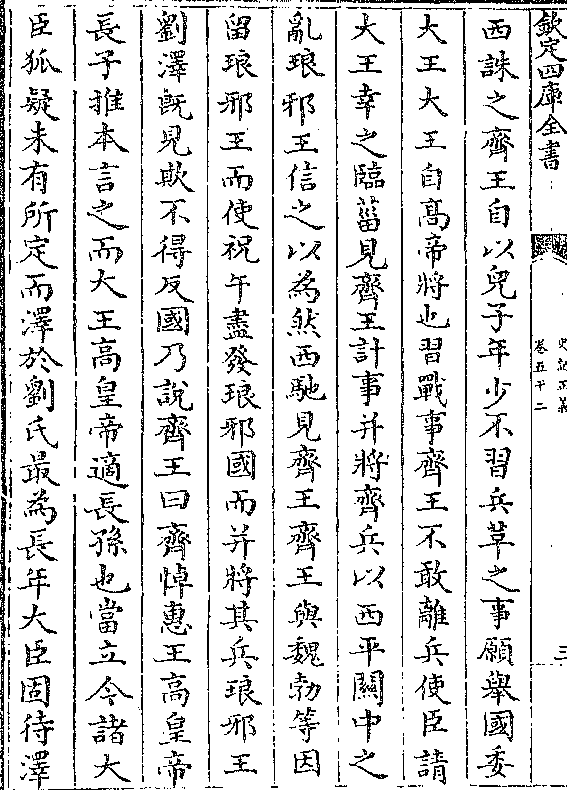 欽定四庫全書
史記正義
卷五十二
三
西誅之齊王自以兒子年少不習兵革之事願舉國委
大王大王自髙帝將也習戰事齊王不敢離兵使臣請
大王幸之臨菑見齊王計事并將齊兵以西平關中之
亂琅邪王信之以為然西馳見齊王齊王與魏勃等因
留琅邪王而使祝午盡發琅邪國而并將其兵琅邪王
劉澤既見欺不得反國乃說齊王曰齊悼惠王高皇帝
長子推本言之而大王高皇帝適長孫也當立今諸大
臣狐疑未有所定而澤於劉氏最為長年大臣固待澤